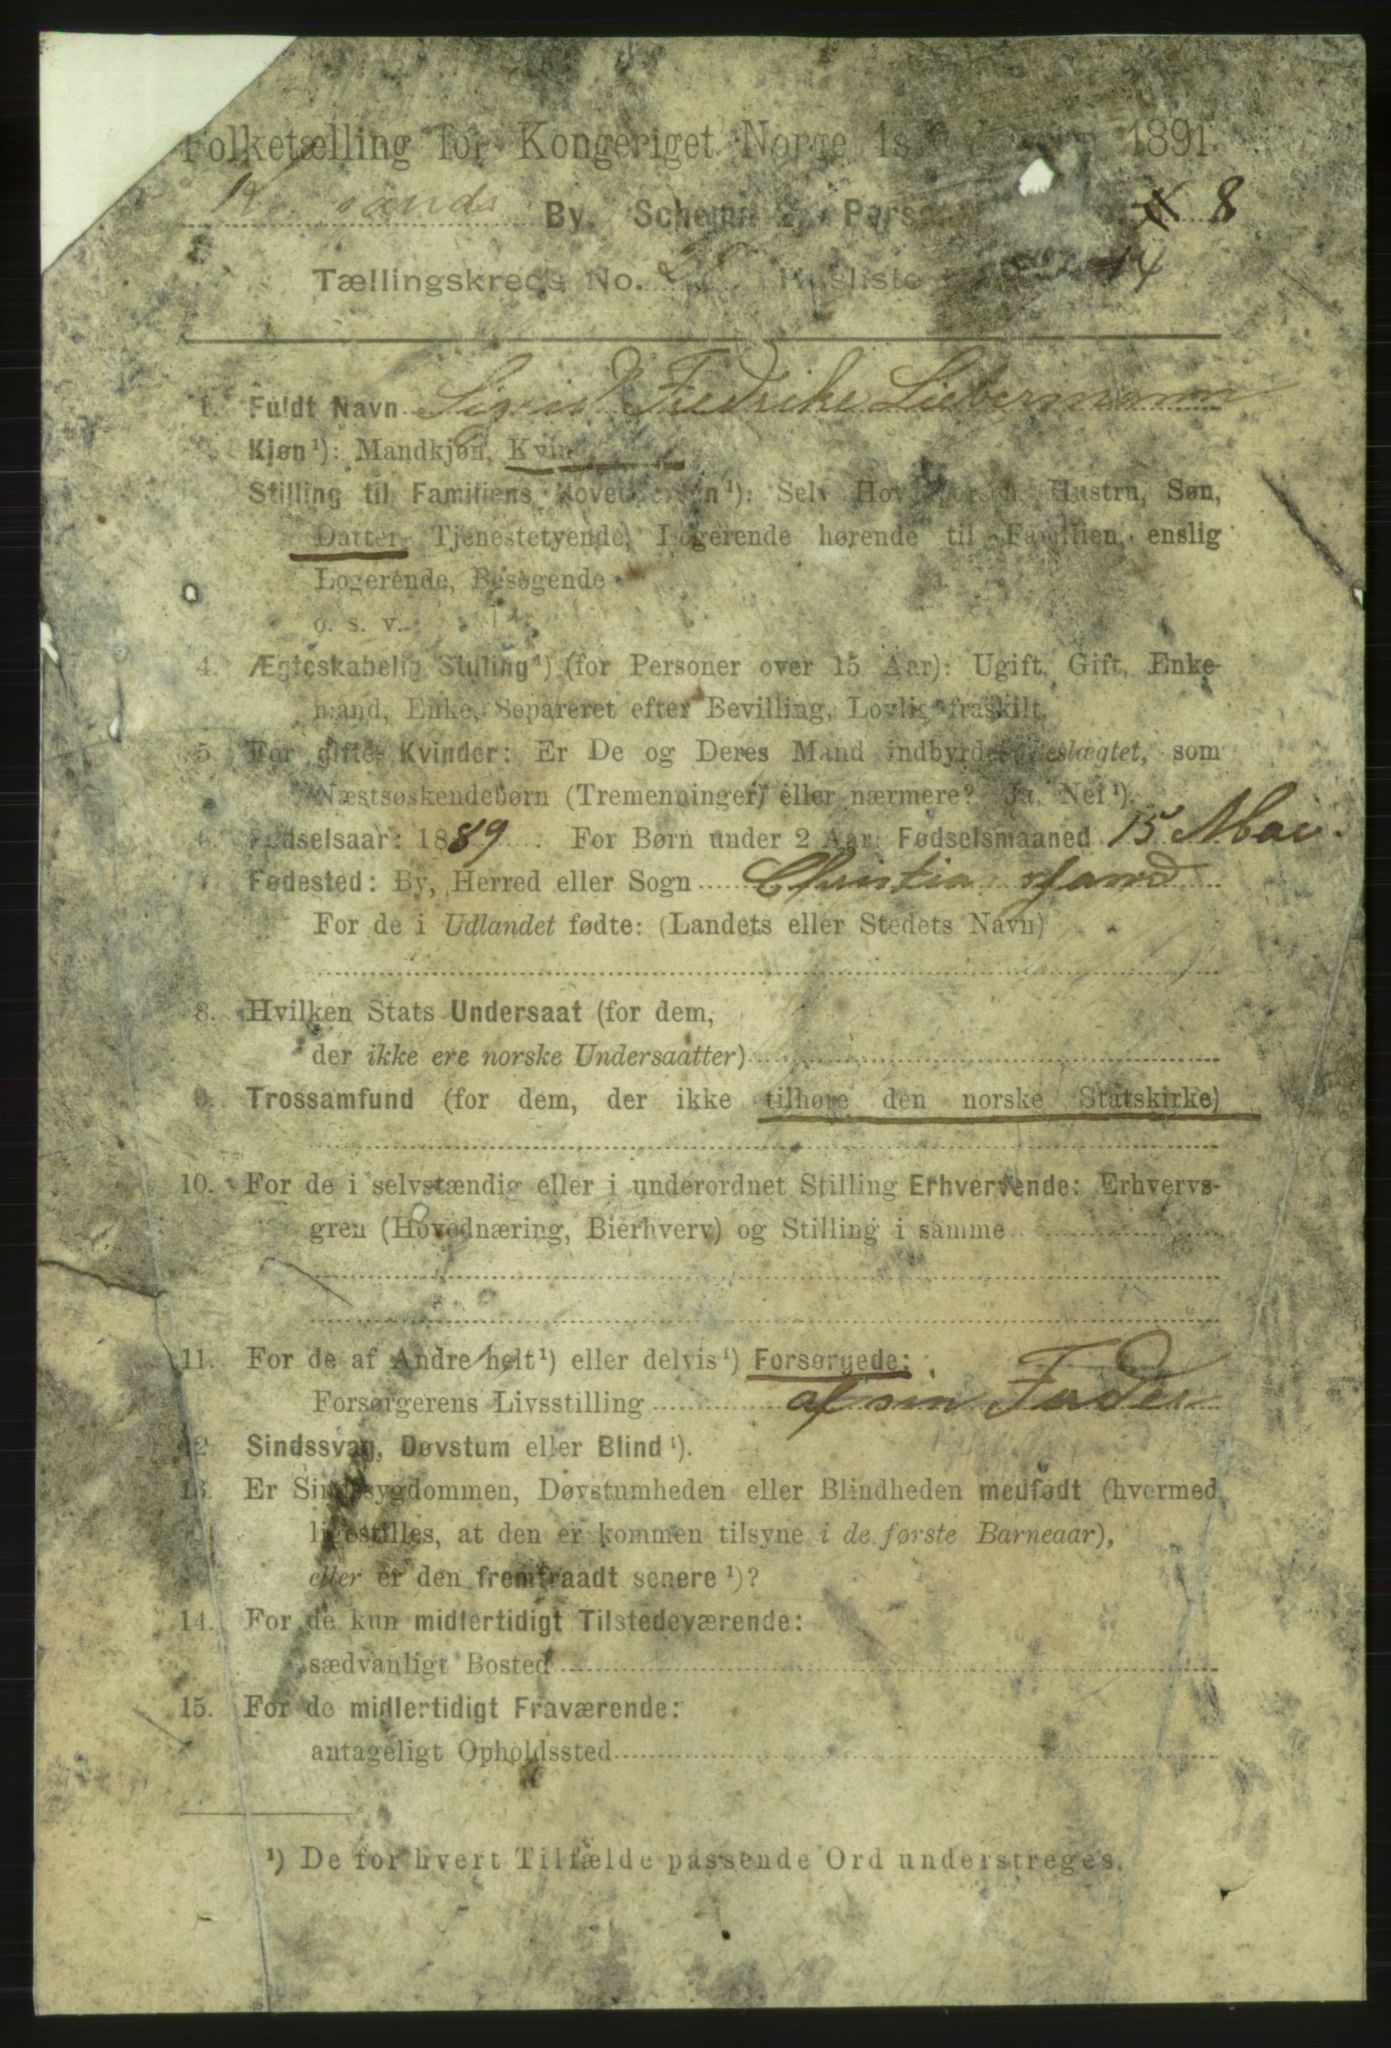 Folketælling for Kongeriget Norge 1891.
sands By. Schema 2. 8
Tællingskreds No. Husliste 14
1. Fuldt Navn Sigrid Fredrike Liebermann
Kjøn¹): Mandkjøn, Kvin
Stilling til Familiens Hovedperson¹): Selv Hovedperson, Hustru, Søn,
Datter, Tjenestetyende, Logerende hørende til Familien, enslig
Logerende, Besøgende
o. s. v.
4. Ægteskabelig Stilling¹) (for Personer over 15 Aar): Ugift, Gift, Enke-
mand, Enke, Separeret efter Bevilling, Lovlig fraskilt.
5. For gifte Kvinder: Er De og Deres Mand indbyrdes beslægtet, som
Næstsøskendebørn (Tremenninger) eller nærmere? Ja, Nei¹).
6. Fødselsaar: 1889. For Børn under 2 Aar: Fødselsmaaned 15 Mai.
7. Fødested: By, Herred eller Sogn Christiansand
For de i Udlandet fødte: (Landets eller Stedets Navn)
8. Hvilken Stats Undersaat (for dem,
der ikke ere norske Undersaatter)
9. Trossamfund (for dem, der ikke tilhøre den norske Statskirke)
10. For de i selvstændig eller i underordnet Stilling Erhvervende: Erhvervs-
gren (Hovednæring, Bierhverv) og Stilling i samme
11. For de af Andre helt¹) eller delvis¹) Forsørgede:
Forsørgerens Livsstilling af sin Fader
12. Sindssvag, Døvstum eller Blind¹).
13. Er Sindssygdommen, Døvstumheden eller Blindheden medfødt (hvormed
ligestilles, at den er kommen tilsyne i de første Barneaar),
eller er den fremtraadt senere¹)?
14. For de kun midlertidigt Tilstedeværende:
sædvanligt Bosted
15. For de midlertidigt Fraværende:
antageligt Opholdssted
¹) De for hvert Tilfælde passende Ord understreges.